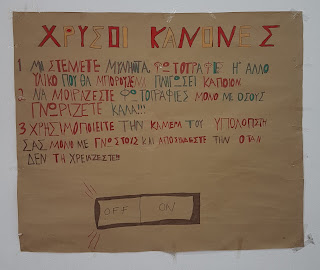 ΧΡΥΣΟΙ ΚΑΝΟΝΕΣ
1 ΜΗ ΣΤΕΛΝΕΤΕ ΜΥΝΗΜΑΤΑ, ΦΩΤΟΓΡΑΦΙΕΣ Η' ΑΛΛΟ
ΥΛΙΚΟ ΠΟΥ ΘΑ ΜΠΟΡΟΥΣΕ ΝΑ ΠΛΗΓΩΣΕΙ ΚΑΠΟΙΟΝ.
2 ΝΑ ΜΟΙΡΑΖΕΣΤΕ ΦΩΤΟΓΡΑΦΙΕΣ ΜΟΝΟ ΜΕ ΟΣΟΥΣ
ΓΝΩΡΙΖΕΤΕ ΚΑΛΑ!!!
3 ΧΡΗΣΙΜΟΠΟΙΕΙΤΕ ΤΗΝ ΚΑΜΕΡΑ ΤΟΥ ΥΠΟΛΟΓΙΣΤΗ
ΣΑΣ ΜΟΝΟ ΜΕ ΓΝΩΣΤΟΥΣ ΚΑΙ ΑΠΟΣΥΝΔΕΣΤΕ ΤΗΝ ΟΤΑΝ
ΔΕΝ ΤΗ ΧΡΕΙΑΖΕΣΤΕ!!
OFF ON